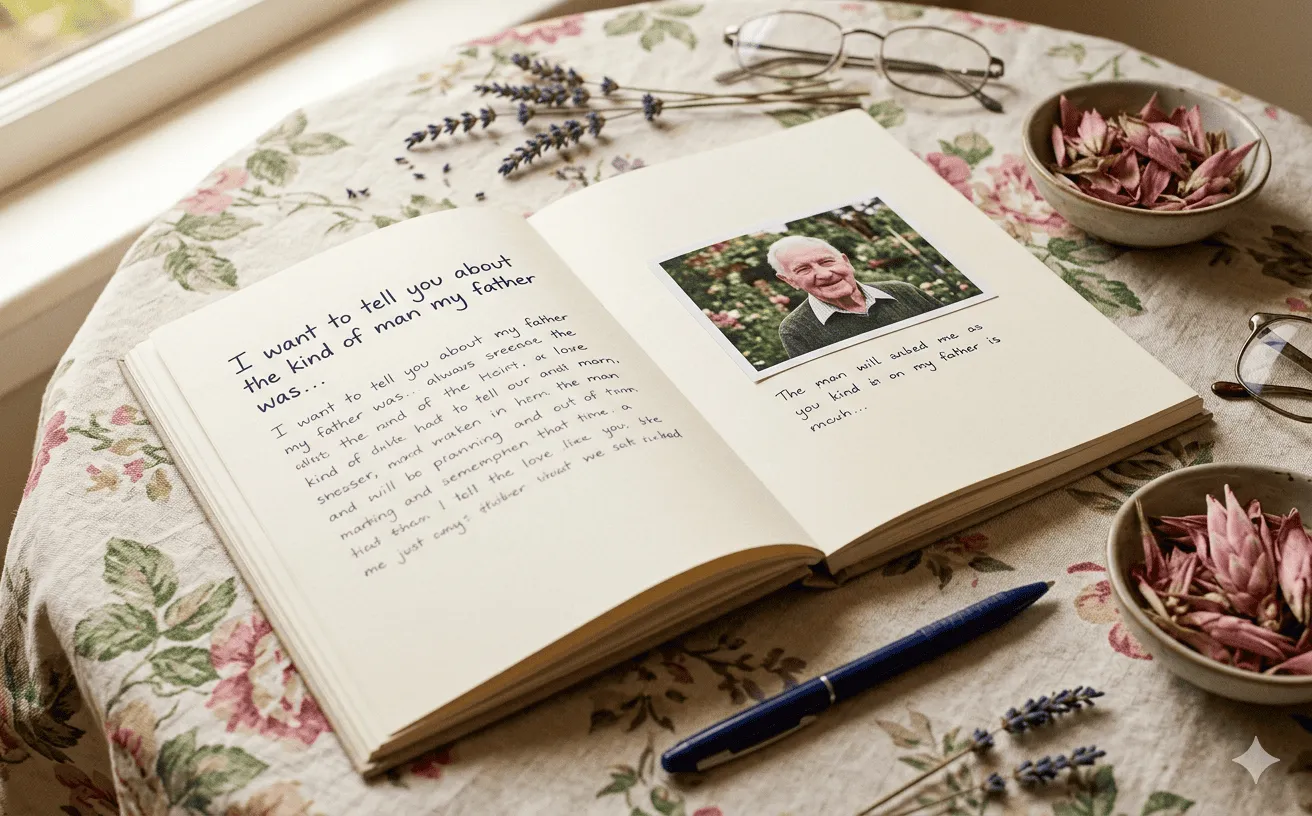 I want to tell you about
the kind of man my father
was...
I want to tell you about my father
my father was.. always sreenoe the
the rand of the Heirt. or love
kind of had to tell our andl morn,
sheaser, mord wraken in horn. the man
and will be pranning and out of
marting and sememphen that time. a
them I tell the love like you. She
me just we sat
The man will asbed me as
you kind in on my father is
mouh...